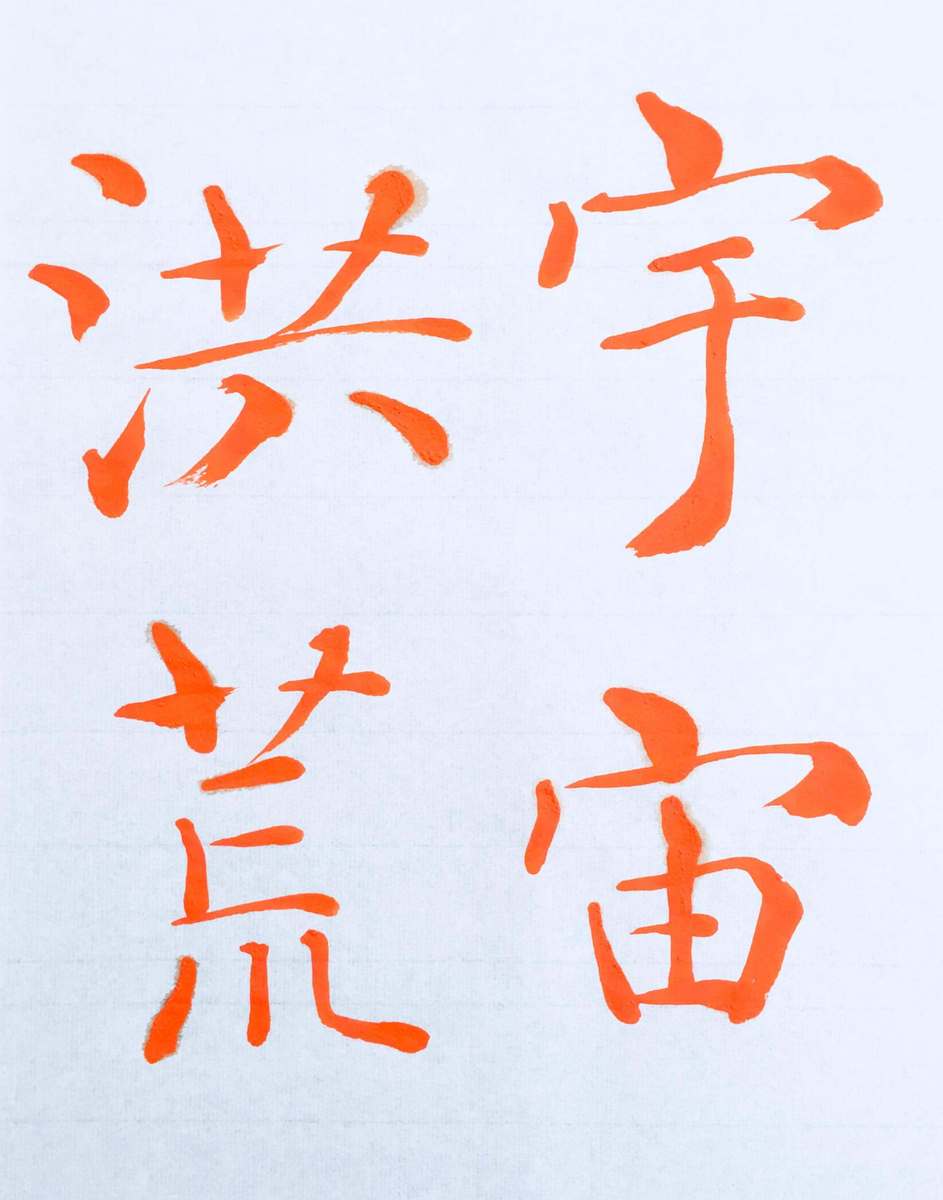 宇宙
洪荒